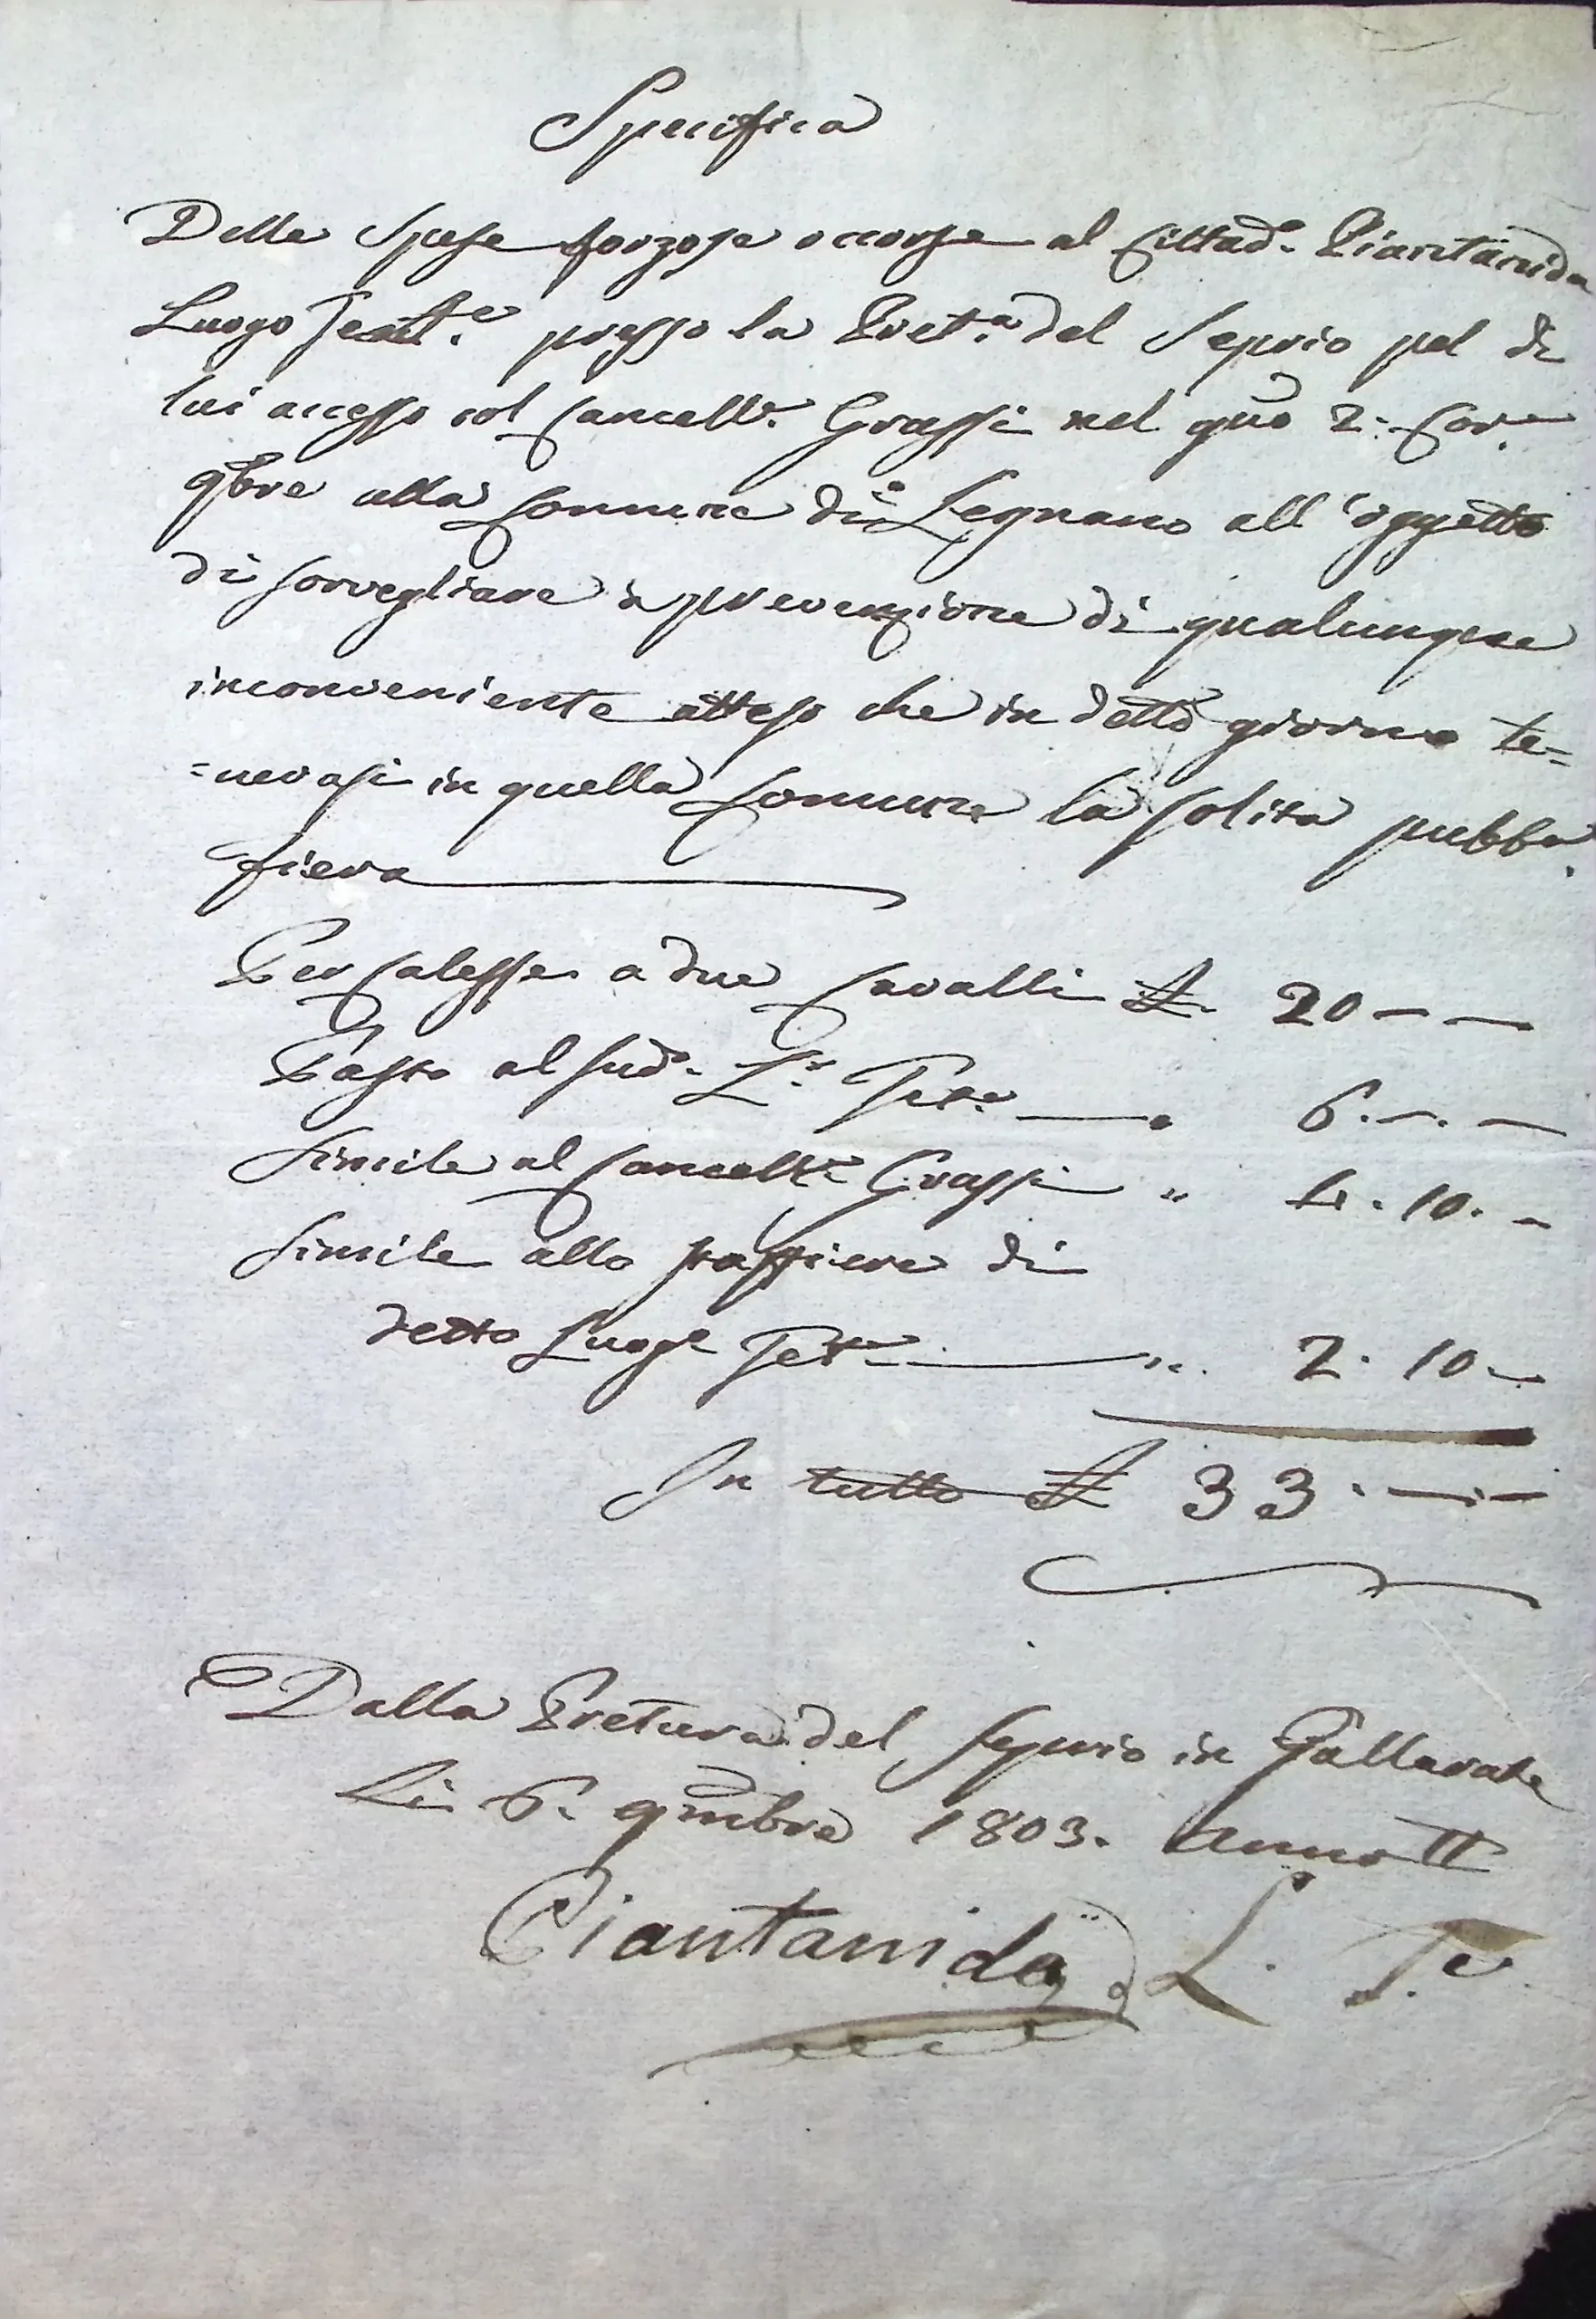 Specifica
Delle Spese forzose occorse al Cittad.o Piantanida
Luogo Tent.e presso la Pret.a del Seprio pel di
lui accesso col Cancell.e Grassi nel gno 2. Cor.e
9bre alla Comune di Legnano all'oggetto
di sorvegliare a prevenzione di qualunque
inconveniente atteso che in detto giorno te=
=nevasi in quella Comune la solita pubb.a
fiera
Per Calesse a due Cavalli £. 20 — —
Pasto al sud.o L.o Ten.e — " 6. —. —
Simile al Cancell.e Grassi " 4. 10. —
Simile allo staffiere di
detto Luog.o Ten.e — ". 2. 10 —
In tutto £ 33. — . —
Dalla Pretura del Seprio in Gallarate
Li 6. 9mbre 1803. Anno II
Piantanida L. T.e